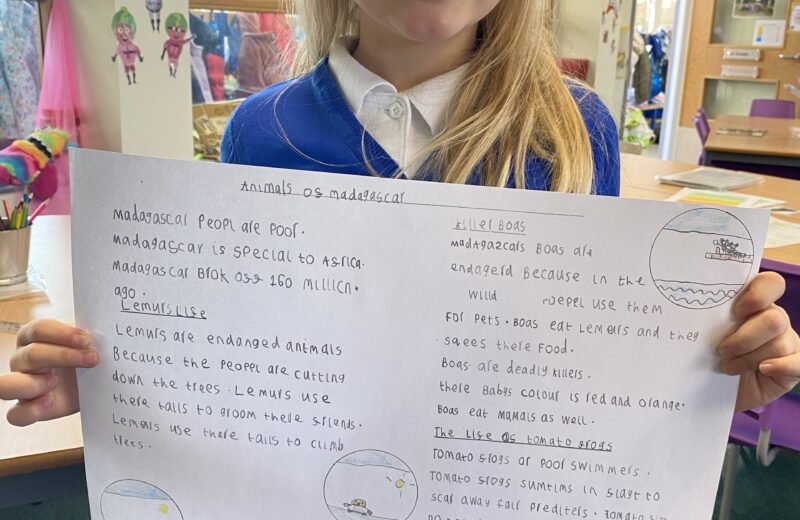 Animals os madagascar
madagascar Peopl are poor.
madagascar is special to Asrica.
madagascar Brok oss 160 million.
ago.
Lemurs Lise
Lemurs are endanged animals
Because the peopel are cutting
down the trees. Lemurs use
there tails to groom there sriends.
Lemurs use there tails to climb
trees.
killer Boas
madAgazcars Boas are
endagerd Because in the
willd peopel use them
For pets. Boas eat Lemers and they
sqees there Food.
Boas are deadly killers.
there Babys colour is red and orange.
Boas eat mamals as well.
The Lise os tomato srogs
Tomato srogs ar poor swimmers.
Tomato srogs sumtims in slayt to
scar away fair prediters. Tomato